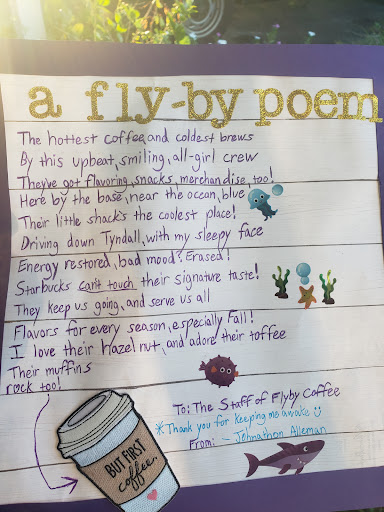 a fly-by poem
The hottest coffee, and coldest brews
By this upbeat, smiling, all-girl crew
They've got flavoring, snacks, merchandise, too!
Here by the base, near the ocean, blue
Their little shack's the coolest place!
Driving down Tyndall, with my sleepy face
Energy restored, bad mood? Erased!
Starbucks can't touch their signature taste!
They keep us going, and serve us all
Flavors for every season, especially Fall!
I love their Hazel nut, and adore their toffee
Their muffins
rock too!
To: The Staff of Flyby Coffee
*Thank you for keeping me awake
From: - Johnathon Alleman
BUT FIRST
coffee.